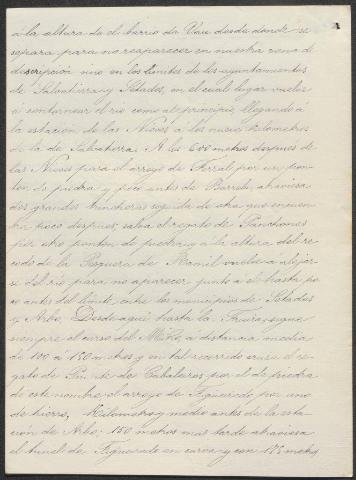 á la altura de el barrio de Vau desde donde se
separa para no reaparecer en nuestra zona de
descripción sino en los límites de los ayuntamientos
de Salvatierra y Setados, en el cual lugar vuelve
á contornear el río como al principio, llegando á
la estación de las Nieves á los nueve kilómetros
de la de Salvatierra. A los 600 metros después de
las Nieves pasa el arroyo de Ferral por un pon-
tón de piedra y poco antes de atraviesa
dos grandes trincheras seguida de otra que encuen-
tra poco después; salva el regato de Panchones
por otro pontón de piedra y á la altura del re-
codo de la Pesquera de vuelve á alejar-
se del río para no aparecer junto á el hasta po-
co antes del límite entre los municipios de Setados
y Arbo. Desde aquí hasta la Frieira sigue
siempre el curso del Miño, á distancia media
de 100 á 150 metros y en tal recorrido cruza el re-
gato de de Cabaleiros por el de piedra
de este nombre, el arroyo de Figueredo por uno
de hierro, kilómetro y medio antes de la esta-
ción de Arbo; 150 metros mas tarde atraviesa
el tunel de Figueredo en curva y con 172 metros